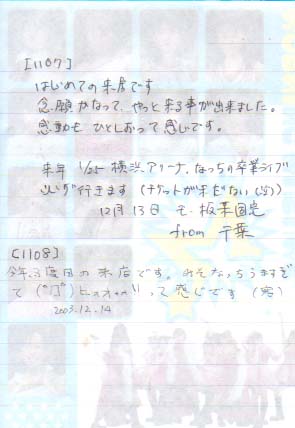 [1107]
はじめての来店です
念願かなって、やっと来る事が出来ました。
感動も ひとしおって感じです。
来年 1/25 横浜アリーナ、なっちの卒業ライブ
行きます(チケットがまだない(泣))
12月13日 モ.板橋固定
from 千葉
[1108]
今年3度目の来店です。めそなっちうますぎ
て(゜Д゜)ヒョオォォ!って感じです(寒)
2003.12.14